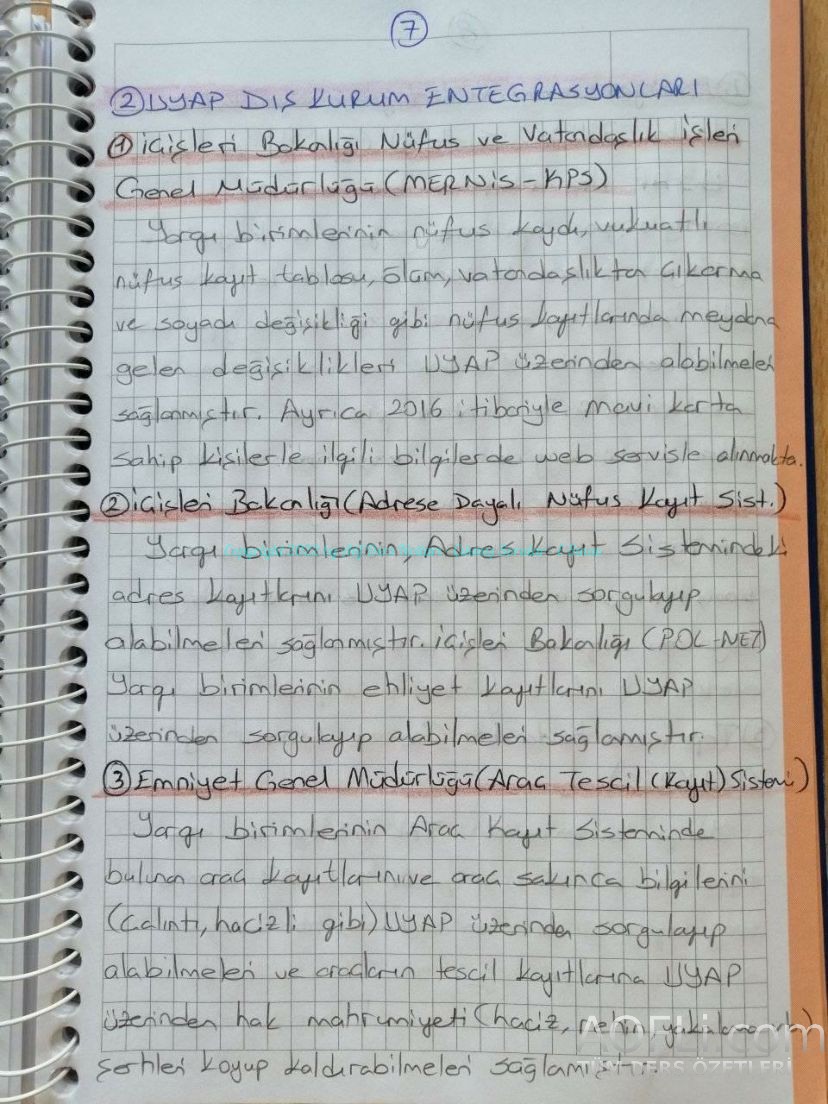 7
② UYAP DIŞ KURUM ENTEGRASYONLARI
① İçişleri Bakanlığı Nüfus ve Vatandaşlık işleri
Genel Müdürlüğü (MERNİS-KPS)
Yargı birimlerinin nüfus kaydı, vukuatlı
nüfus kayıt tablosu, ölüm, vatandaşlıktan çıkarma
ve soyadı değişikliği gibi nüfus kayıtlarında meydana
gelen değişiklikleri UYAP üzerinden alabilmeleri
sağlanmıştır. Ayrıca 2016 itibariyle mavi karta
sahip kişilerle ilgili bilgilerde web servisle alınmakta.
② İçişleri Bakanlığı (Adrese Dayalı Nüfus Kayıt Sist.)
Yargı birimlerinin, Adres Kayıt Sistemindeki
adres kayıtlarını UYAP üzerinden sorgulayıp
alabilmeleri sağlanmıştır. İçişleri Bakanlığı (POL-NET)
Yargı birimlerinin ehliyet kayıtlarını UYAP
üzerinden sorgulayıp alabilmeleri sağlamıştır.
③ Emniyet Genel Müdürlüğü (Araç Tescil (Kayıt) Sistemi)
Yargı birimlerinin Araç Kayıt Sisteminde
bulunan araç kayıtlarını ve araç sakınca bilgilerini
(çalıntı, hacizli gibi) UYAP üzerinden sorgulayıp
alabilmeleri ve araçların tescil kayıtlarına UYAP
üzerinden hak mahrumiyeti (haciz, rehin, yakalamalı)
şerhleri koyup kaldırabilmeleri sağlamıştır.
AOFLi.com
TÜM DERS ÖZETLERİ